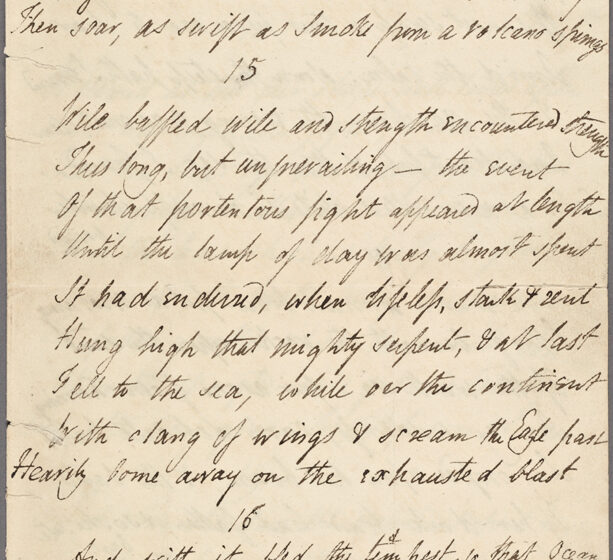 Then soar, as swift as smoke from a volcano springs
15
Wile baffled wile and strength encountered strength
Thus long, but unprevailing — the event
Of that portentous fight appeared at length
Until the lamp of day was almost spent
It had endured, when lifeless, stark & rent
Hung high that mighty serpent, & at last
Fell to the sea, while oer the continent
With clang of wings & scream the Eagle past
Heavily borne away on the exhausted blast
16
And with it fled the tempest, so that Ocean